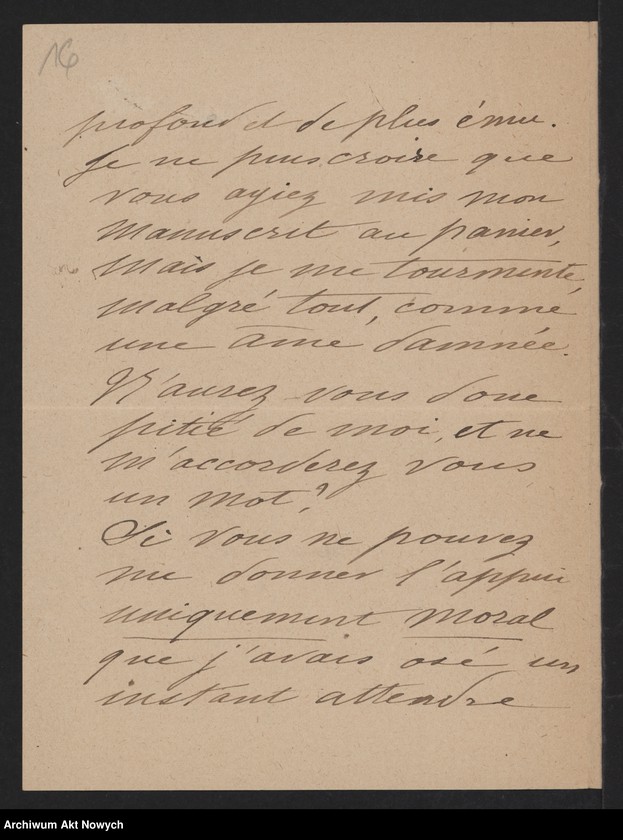 16
profond et de plus ému.
Je ne puis croire que
vous ayiez mis mon
manuscrit au panier,
mais je me tourmente,
malgré tout, comme
une âme damnée.
N'aurez-vous donc
pitié de moi, et ne
m'accorderez vous
un mot?
Si vous ne pouvez
me donner l'appui
uniquement moral
que j'avais osé un
instant attendre
Archiwum Akt Nowych